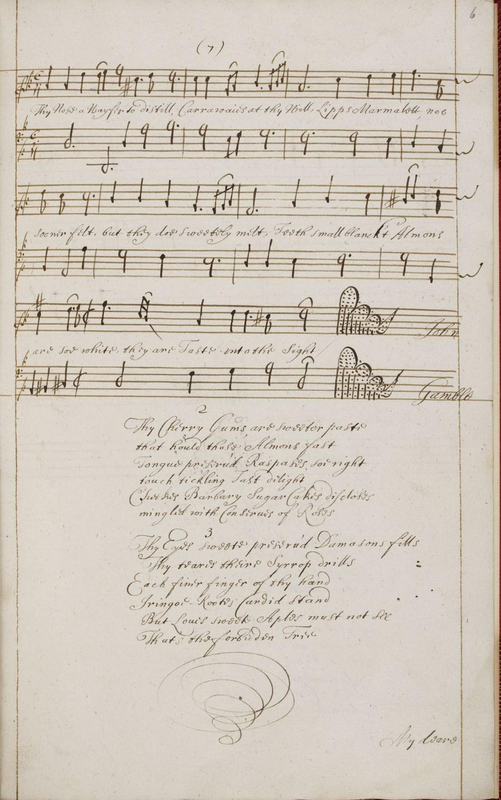 (7)
6
Thy Nose a Kayser to distill, Carrawaies at thy Nell Lipps Marmalett, noe
sooner felt, but they doe sweetely melt, Teeth small blanckt Almons
are soe white they are Taste into the Sight
John
Gamble
2
Thy Cherry Gums are sweeter paste
that hould those Almons fast
Tongue preserud Raspases soe right
touch tickling Tast delight
Cheekes Barbary Sugar Cakes discloses
mingled with Conserues of Roses
3
Thy Eyes sweete preserud Damasons fills
Thy teares there Syrrop drills
Each finer finger of thy hand
Iringoe Rootes Candid stand
But Loues sweet Aples must not See
Thats the forbidden Tree
My deare